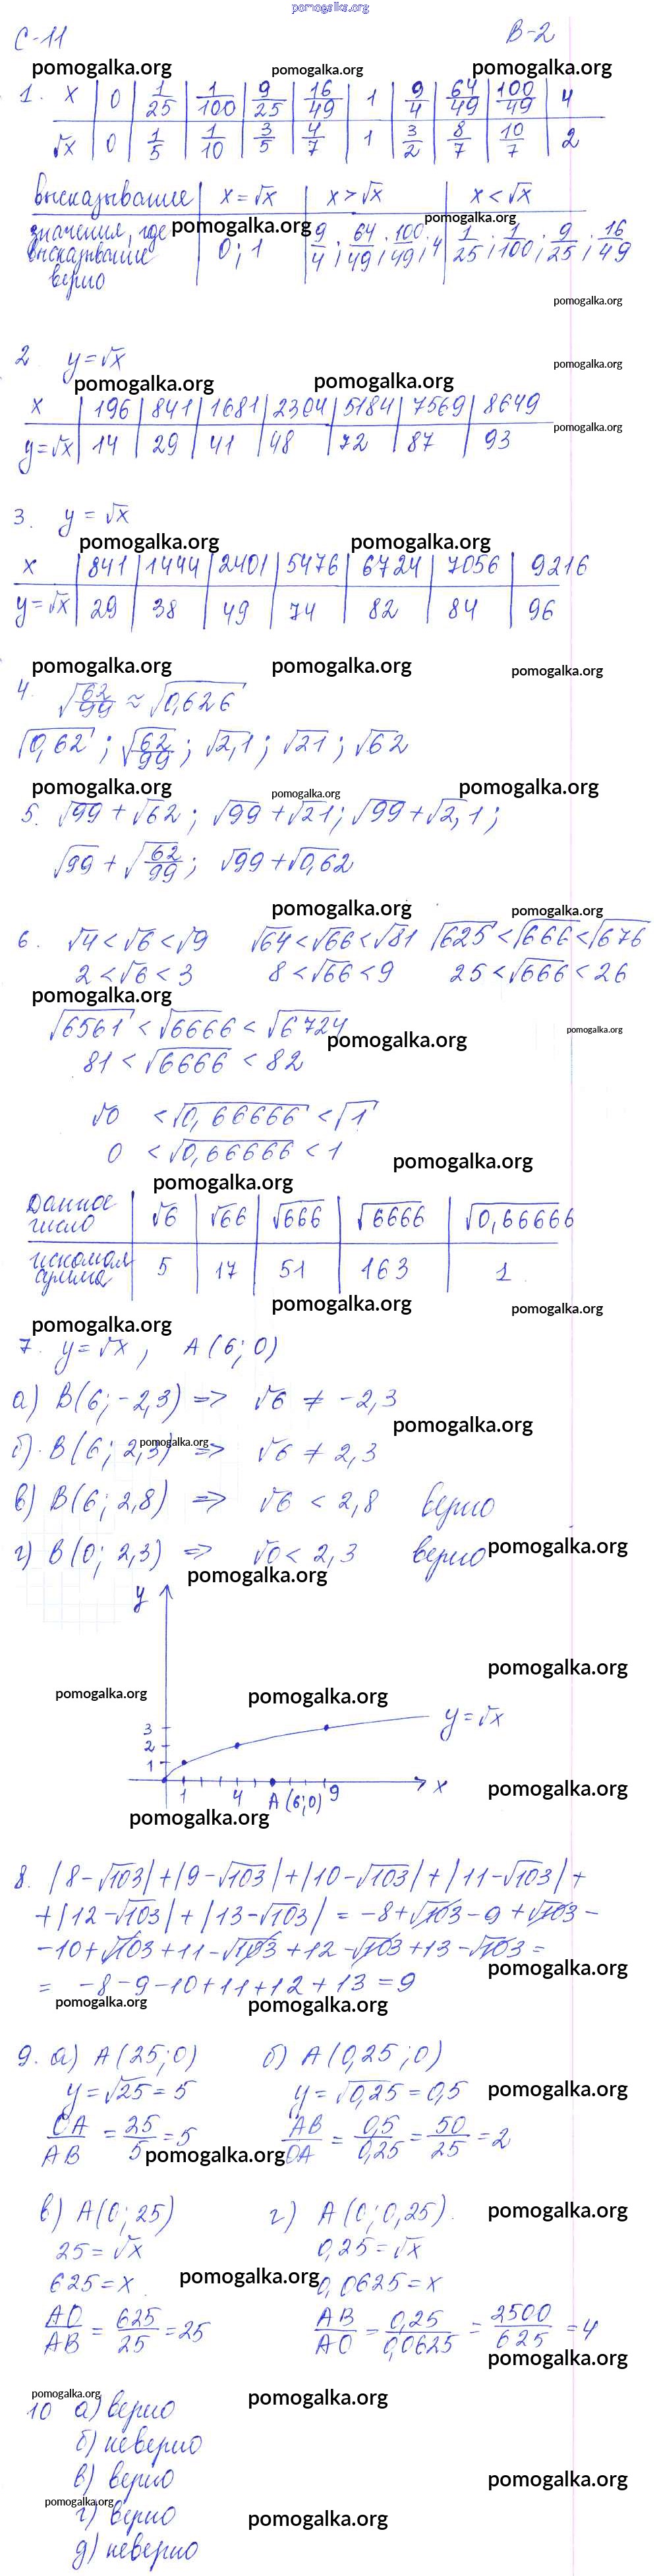 pomogalka.org
С-11 В-2
pomogalka.org pomogalka.org pomogalka.org
1. x | 0 | 1/25 | 1/100 | 9/25 | 16/49 | 1 | 9/4 | 64/49 | 100/49 | 4
√x | 0 | 1/5 | 1/10 | 3/5 | 4/7 | 1 | 3/2 | 8/7 | 10/7 | 2
высказывание | x = √x | x > √x | x < √x
pomogalka.org pomogalka.org
значения, где высказывание верно | 0; 1 | 9/4; 64/49; 100/49; 4 | 1/25; 1/100; 9/25; 16/49
pomogalka.org
2 y = √x
pomogalka.org
pomogalka.org pomogalka.org
x | 196 | 841 | 1681 | 2304 | 5184 | 7569 | 8649
pomogalka.org
y = √x | 14 | 29 | 41 | 48 | 72 | 87 | 93
3. y = √x
pomogalka.org pomogalka.org
x | 841 | 1444 | 2401 | 5476 | 6724 | 7056 | 9216
y = √x | 29 | 38 | 49 | 74 | 82 | 84 | 96
pomogalka.org pomogalka.org pomogalka.org
4. √62/99 ≈ √0,626
√0,62; √62/99; √2,1; √21; √62
pomogalka.org pomogalka.org pomogalka.org
5. √99 + √62; √99 + √21; √99 + √2,1;
√99 + √62/99; √99 + √0,62
pomogalka.org pomogalka.org
6. √4 < √6 < √9 √64 < √66 < √81 √625 < √666 < √676
2 < √6 < 3 8 < √66 < 9 25 < √666 < 26
pomogalka.org
√6561 < √6666 < √6724
pomogalka.org pomogalka.org
81 < √6666 < 82
√0 < √0,66666 < √1
0 < √0,66666 < 1
pomogalka.org
pomogalka.org
Данное число | √6 | √66 | √666 | √6666 | √0,66666
искомая сумма | 5 | 17 | 51 | 163 | 1
pomogalka.org pomogalka.org
pomogalka.org
7. y = √x, A(6; 0)
а) B(6; -2,3) => √6 ≠ -2,3
pomogalka.org
б). B(6; 2,3) => √6 ≠ 2,3
pomogalka.org
в) B(6; 2,8) => √6 < 2,8 верно
г) B(0; 2,3) => √0 < 2,3 верно
pomogalka.org
pomogalka.org
y
pomogalka.org
pomogalka.org pomogalka.org
3 y = √x
2
1
x
1 4 A(6;0) 9
pomogalka.org
pomogalka.org
8. |8-√103|+|9-√103|+|10-√103|+|11-√103|+
+|12-√103|+|13-√103| = -8+√103-9+√103-
-10+√103+11-√103+12-√103+13-√103 =
pomogalka.org
= -8-9-10+11+12+13 = 9
pomogalka.org pomogalka.org
9. а) A(25; 0) б) A(0,25; 0)
y = √25 = 5 y = √0,25 = 0,5
pomogalka.org
OA/AB = 25/5 = 5 AB/OA = 0,5/0,25 = 50/25 = 2
pomogalka.org
в) A(0; 25) г) A(0; 0,25).
pomogalka.org
25 = √x 0,25 = √x
625 = x 0,0625 = x
pomogalka.org
AO/AB = 625/25 = 25 AB/AO = 0,25/0,0625 = 2500/625 = 4
pomogalka.org
pomogalka.org pomogalka.org
10 а) верно
б) неверно
в) верно
pomogalka.org
pomogalka.org
г) верно
pomogalka.org
д) неверно